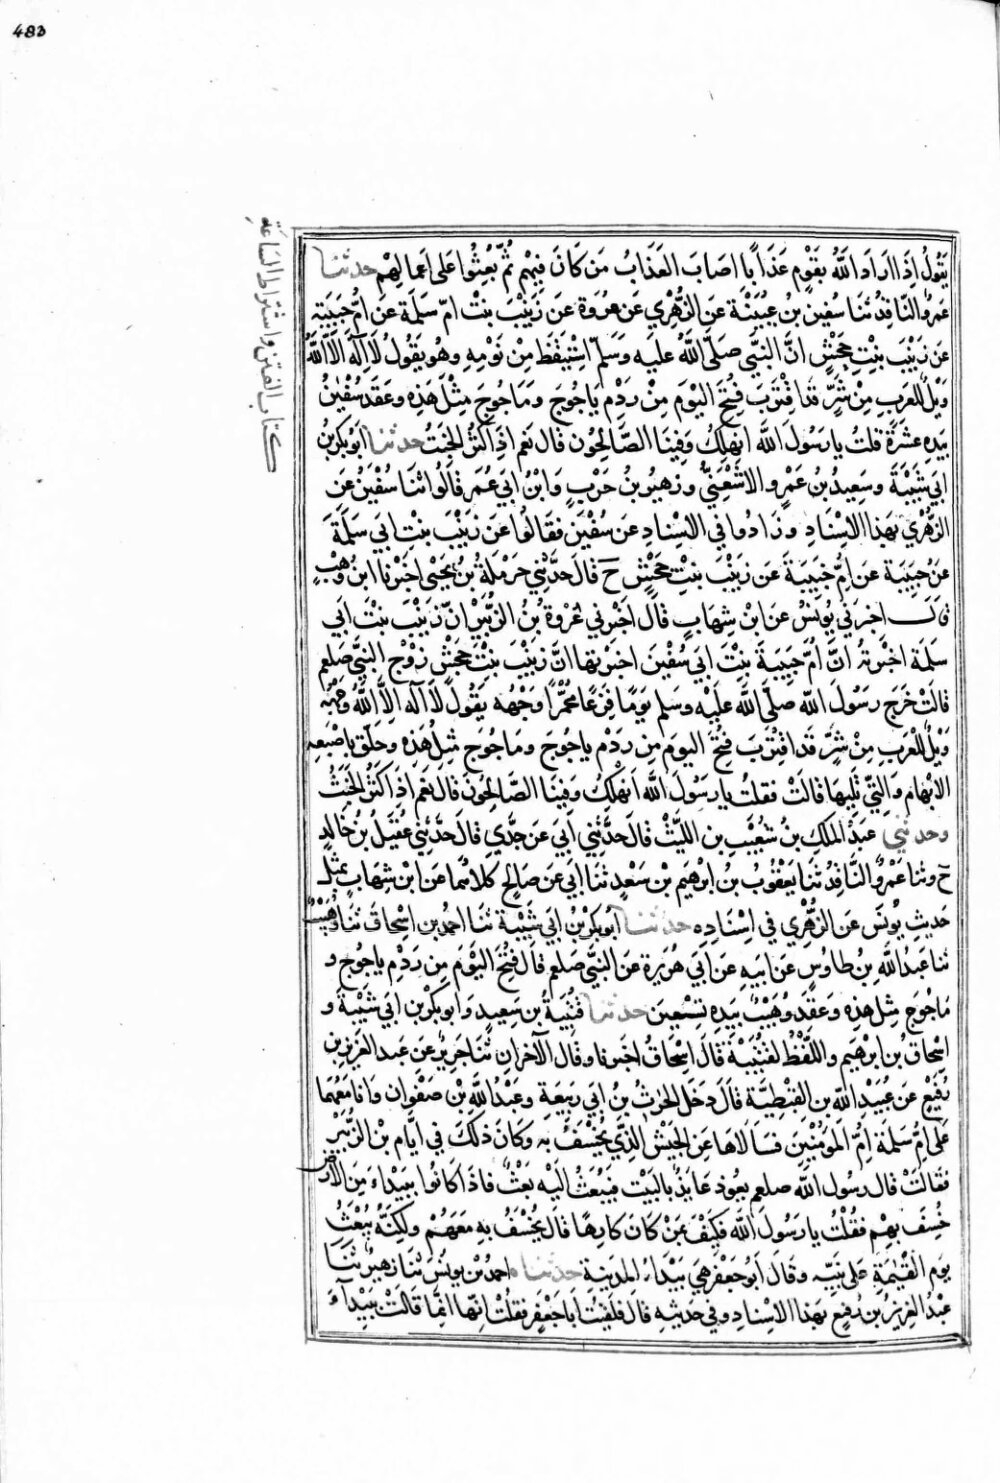 483
كتاب الفتن واشراط الساعة
يَقُولُ اِذَا اَرَادَ اللّٰهُ بِقَوْمٍ عَذَابًا اَصَابَ العَذَابُ مَنْ كَانَ فِيْهِمْ ثُمَّ بُعِثُوا عَلى اَعمالِهِمْ حدثنا
عَمرٌو النّاقِدُ ثنا سفين بن عُيَيْنَة عَنِ الزُّهْرِي عَن عُروَة عَنْ زَيْنَبَ بنْتِ امّ سَلَمَة عَن اُمّ حَبِيْبَة
عَن زَيْنَبَ بِنْتِ جَحْشٍ انَّ النَّبيَّ صَلّى اللّٰهُ عليه وَسَلّم اسْتَيْقَظَ مِنْ نَوْمِهِ وهُو يَقُولُ لَا اِلٰهَ اِلَّا اللّٰهُ
وَيْلٌ لِلْعَرَبِ مِنْ شَرٍّ قَد اقْتَرَبَ فُتِحَ اليَوْمَ مِنْ رَدْمِ يَاجُوجَ وَمَاجُوجَ مِثْلُ هَذِهِ وعَقَدَ سُفْيٰنُ
بيَدِهِ عشَرَةً قلتُ يا رَسُولَ اللّٰه انَهْلِكُ وَفِيْنَا الصَّالِحُون قال نَعم اِذَا كَثُرَ الخَبَثُ حدثنا ابُو بكر بنُ
ابي شَيْبَةَ وسَعِيدُ بن عَمْرٍو الاشْعَثيُّ وزهيرُ بن حَرْبٍ وَابْنُ ابي عُمَر قالُوا ثنَا سُفْيَنُ عَنِ
الزُّهْرِي بهَذا الاِسْنَادِ وزَادُوا في الاِسْنادِ عَن سُفْيٰن فقَالُوا عَن زيْنَبَ بنْتِ ابي سَلَمَةَ
عَن حَبِيْبَة عَن اُمّ حَبِيْبَةَ عَن زيْنَبَ بِنْتِ جَحْشٍ ح قالَ حدَّثني حَرمَلةُ بنُ يَحْيٰى اخبَرنا ابن وَهْبٍ
قالَ اخبرَني يونُسُ عَنِ ابْن شِهَابٍ قال اَخْبَرني عُرْوَة بْنُ الزُّبَيْرِ انّ زَيْنَبَ بنْتَ ابي
سَلَمة اخْبَرتهُ انَّ اُمَّ حَبِيبَةَ بِنْتَ ابي سُفْيٰنَ اخبَرَتها انَّ زيْنَبَ بِنْتَ جَحْشٍ زَوْج النبيّ صلعم
قالَتْ خَرَجَ رَسُولُ اللّٰه صَلّى اللّٰه عليْه وسَلم يَوْمًا فَزِعًا مُحْمَرًّا وَجْهُه يقُولُ لَا اِلٰه اِلَّا اللّٰهُ
وَيْلٌ لِلْعَربِ مِنْ شَرٍّ قَد اقْتَرَبَ فُتِحَ اليومَ مِن رَدْمِ ياجُوجَ وَمَاجُوجَ مِثلُ هَذِهِ وحَلّق باِصْبَعِهِ
الاِبْهَامِ وَالّتي تَلِيهَا قالَتْ فقلتُ يا رَسُولَ اللّٰه اَنَهْلِكُ وَفِيْنَا الصَّالِحُونَ قالَ نعم اِذَا كَثُرَ الخَبَثُ
وحدثني عَبدُ المَلِكِ بن شُعَيْبِ بن اللّيْثْ قالَ حَدَّثني ابي عَن جَدّي قالَ حدَّثني عُقيلُ بْن خالِدٍ
ح وثنا عَمْرٌو النَّاقِدُ ثنَا يَعْقُوبُ بن ابرهيم بن سَعْدٍ ثنا ابي عن صَالِحٍ كلاهُما عَن ابن شِهَابٍ بمِثل
حَديثِ يُونسَ عَن الزُّهْرِي في اِسْنَادِهِ حدثنا ابو بَكر بْنُ ابي شَيْبَة ثنَا احمدُ بن اِسْحاقَ ثنا وُهَيْبٌ
ثنا عَبدُ اللّٰهِ بنُ طاوُسٍ عَن ابِيهِ عَن ابي هُرَيرَة عَن النَّبيّ صَلعم قالَ فُتِحَ اليَوْمَ مِن رَدْمِ ياجُوجَ و
مَاجُوجَ مِثلُ هَذِهِ وَعَقَد وُهَيْبٌ بيَدِهِ تِسْعِينَ حدثنا قُتَيْبَةُ بن سَعِيدٍ وَابو بَكرْ بن ابي شَيْبَةَ و
اِسْحاق بن ابرهِيم واللَّفْظُ لقُتَيْبَةَ قَالَ اِسْحَاقُ اَخبَرنا وقال الآخران ثنَا جَرِيرٌ عَن عَبد العَزيزِ بن
رُفَيْعٍ عَن عُبيْدِ اللّٰه بن القِبْطِيَّة قالَ دَخلَ الحٰرِثُ بنُ ابي رَبيعَةِ وعَبْدُ اللّٰهِ بْن صَفْوان وَانا مَعَهُمَا
عَلى اُمّ سَلَمَة اُمِّ المؤمِنْيْنَ فسَالَاهَا عَنِ الجَيْشِ الّذِي يُخْسَفُ بِه وكانَ ذَلكَ في ايّامِ بن الزُّبَيْرِ
فقالَتْ قال رسُولُ اللّٰه صلعم يعُوذ عَايِذٌ بالبَيْتِ فيُبْعَثُ الَيْه بَعْثٌ فاذَا كانُوا ببَيْداءَ مِنَ الاَرْضِ
خُسِفَ بِهِمْ فقلْتُ يا رَسُولَ اللّٰه فكَيْفَ بمَنْ كانَ كارِهًا قالَ يُخْسَفُ بِهِ مَعَهُمْ ولكِنَّهُ يُبْعَثُ
يومَ القِيٰمَةِ عَلى نِيّتِه وقَالَ اَبُو جَعْفَر هِيَ بَيْدَاءُ المدِينَةِ حدثنا احمدُ بن يونُسَ ثنَا زهيرٌ ثنَا
عَبْدُ العَزِيزِ بنُ رُفيعٍ بِهَذا الاِسْناد وفي حَدِيثِهِ قالَ فلقِيتُ اَبا جَعْفَرٍ فقُلتُ اِنّها انّما قَالَتْ ببَيْدَآءَ